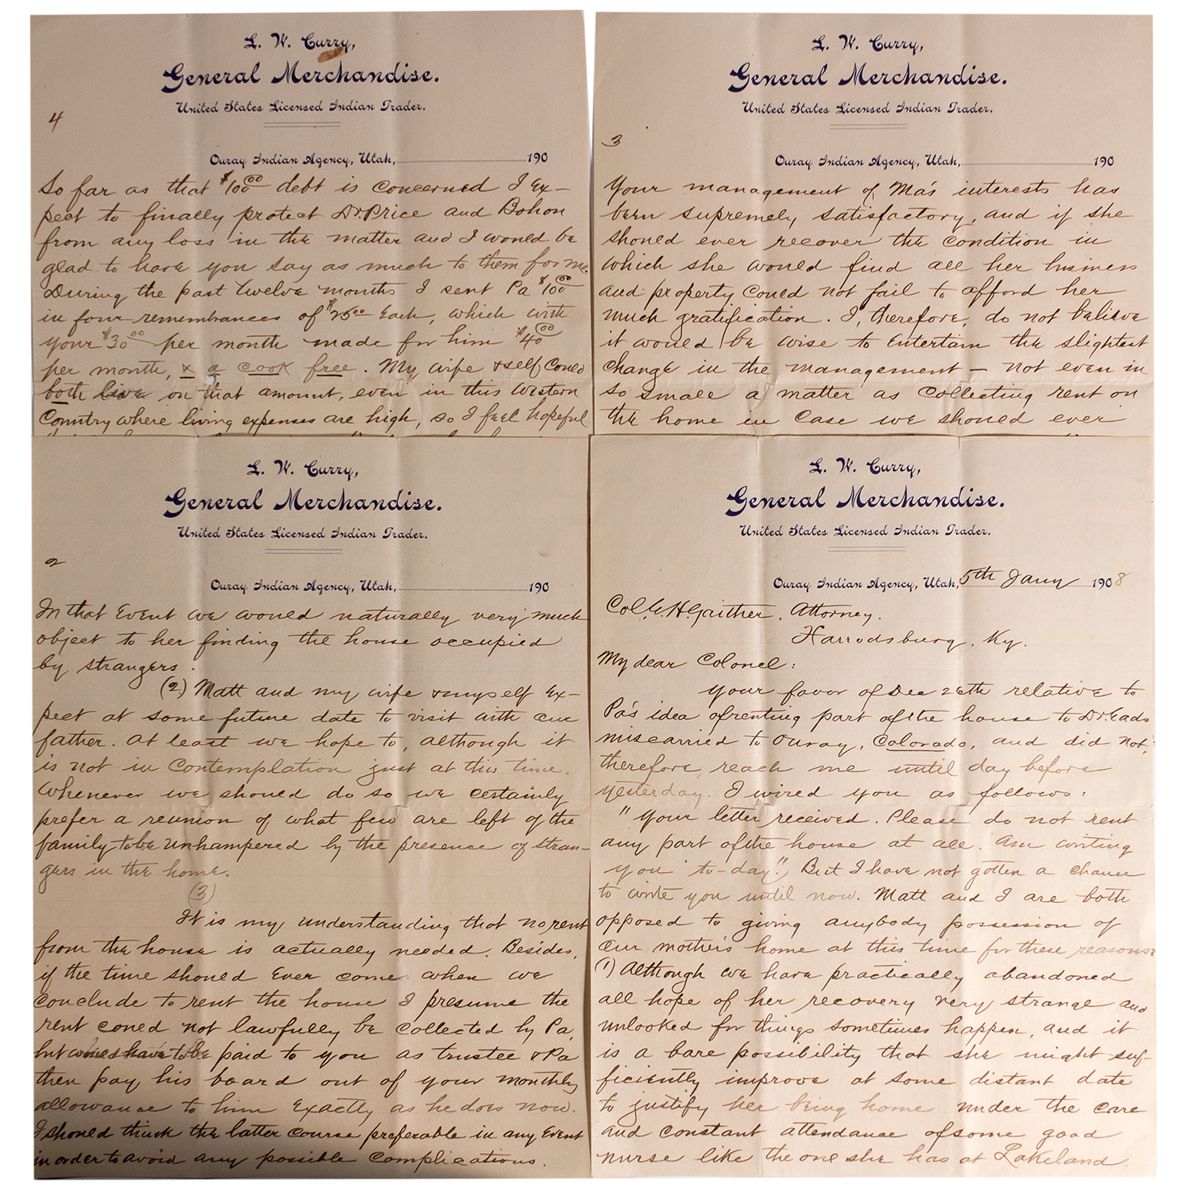 L. W. Curry,
General Merchandise.
United States Licensed Indian Trader.
4
Ouray Indian Agency, Utah, 190
So far as that $100.00 debt is concerned I ex-
pect to finally protect Dr Price and Bohon
from any loss in the matter and I would be
glad to have you say as much to them for me.
During the past twelve months I sent Pa $100.00
in four remembrances of $25.00 each, which with
your $30.00 per month made for him $40.00
per month, & a cook free. My wife & self could
both live on that amount, even in this Western
Country where living expenses are high, so I feel hopeful
L. W. Curry,
General Merchandise.
United States Licensed Indian Trader.
3
Ouray Indian Agency, Utah, 190
Your management of Ma's interests has
been supremely satisfactory, and if she
should ever recover the condition in
which she would find all her business
and property could not fail to afford her
much gratification. I, therefore, do not believe
it would be wise to entertain the slightest
change in the management – not even in
so small a matter as collecting rent on
the home in case we should ever
L. W. Curry,
General Merchandise.
United States Licensed Indian Trader.
2
Ouray Indian Agency, Utah, 190
In that event we would naturally very much
object to her finding the house occupied
by strangers.
(2) Matt and my wife & myself ex-
pect at some future date to visit with our
father. At least we hope to, although it
is not in contemplation just at this time.
Whenever we should do so we certainly
prefer a reunion of what few are left of the
family to be unhampered by the presence of stran-
gers in the home.
(3)
It is my understanding that no rent
from the house is actually needed. Besides,
if the time should ever come when we
conclude to rent the house I presume the
rent could not lawfully be collected by Pa,
but would have to be paid to you as trustee & Pa
then pay his board out of your monthly
allowance to him exactly as he does now.
I should think the latter course preferable in any event
in order to avoid any possible complications.
L. W. Curry,
General Merchandise.
United States Licensed Indian Trader.
Ouray Indian Agency, Utah, 5th Jany 1908
Col. G. H. Gaither, Attorney.
Harrodsburg, Ky.
My dear Colonel:
Your favor of Dec 26th relative to
Pa's idea of renting part of the house to Dr Eads
miscarried to Ouray, Colorado, and did not,
therefore, reach me until day before
yesterday. I wired you as follows:
"Your letter received. Please do not rent
any part of the house at all. Am writing
you to-day." But I have not gotten a chance
to write you until now. Matt and I are both
opposed to giving anybody possession of
our mother's home at this time for these reasons:
(1) Although we have practically abandoned
all hope of her recovery very strange and
unlooked for things sometimes happen, and it
is a bare possibility that she might suf-
ficiently improve at some distant date
to justify her being home under the care
and constant attendance of some good
nurse like the one she has at Lakeland.